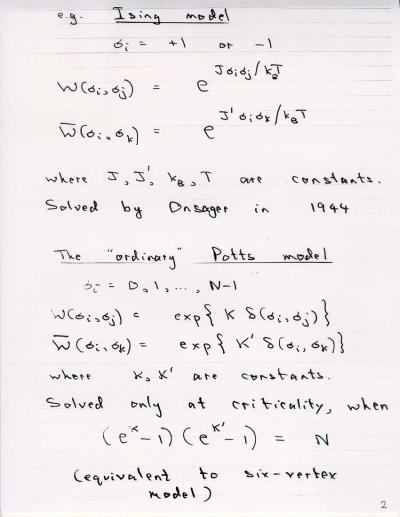 e.g. Ising model
σi = +1 or -1
W(σi,σj) = e^{Jσiσj/kBT}
W̅(σi,σk) = e^{J'σiσk/kBT}
where J, J', kB, T are constants.
Solved by Onsager in 1944
The "ordinary" Potts model
σi = 0,1,..., N-1
W(σi,σj) = exp{ K δ(σi,σj)}
W̅(σi,σk) = exp{ K' δ(σi,σk)}
where K, K' are constants.
Solved only at criticality, when
(e^K -1)(e^{K'} -1) = N
(equivalent to six-vertex
model)
2